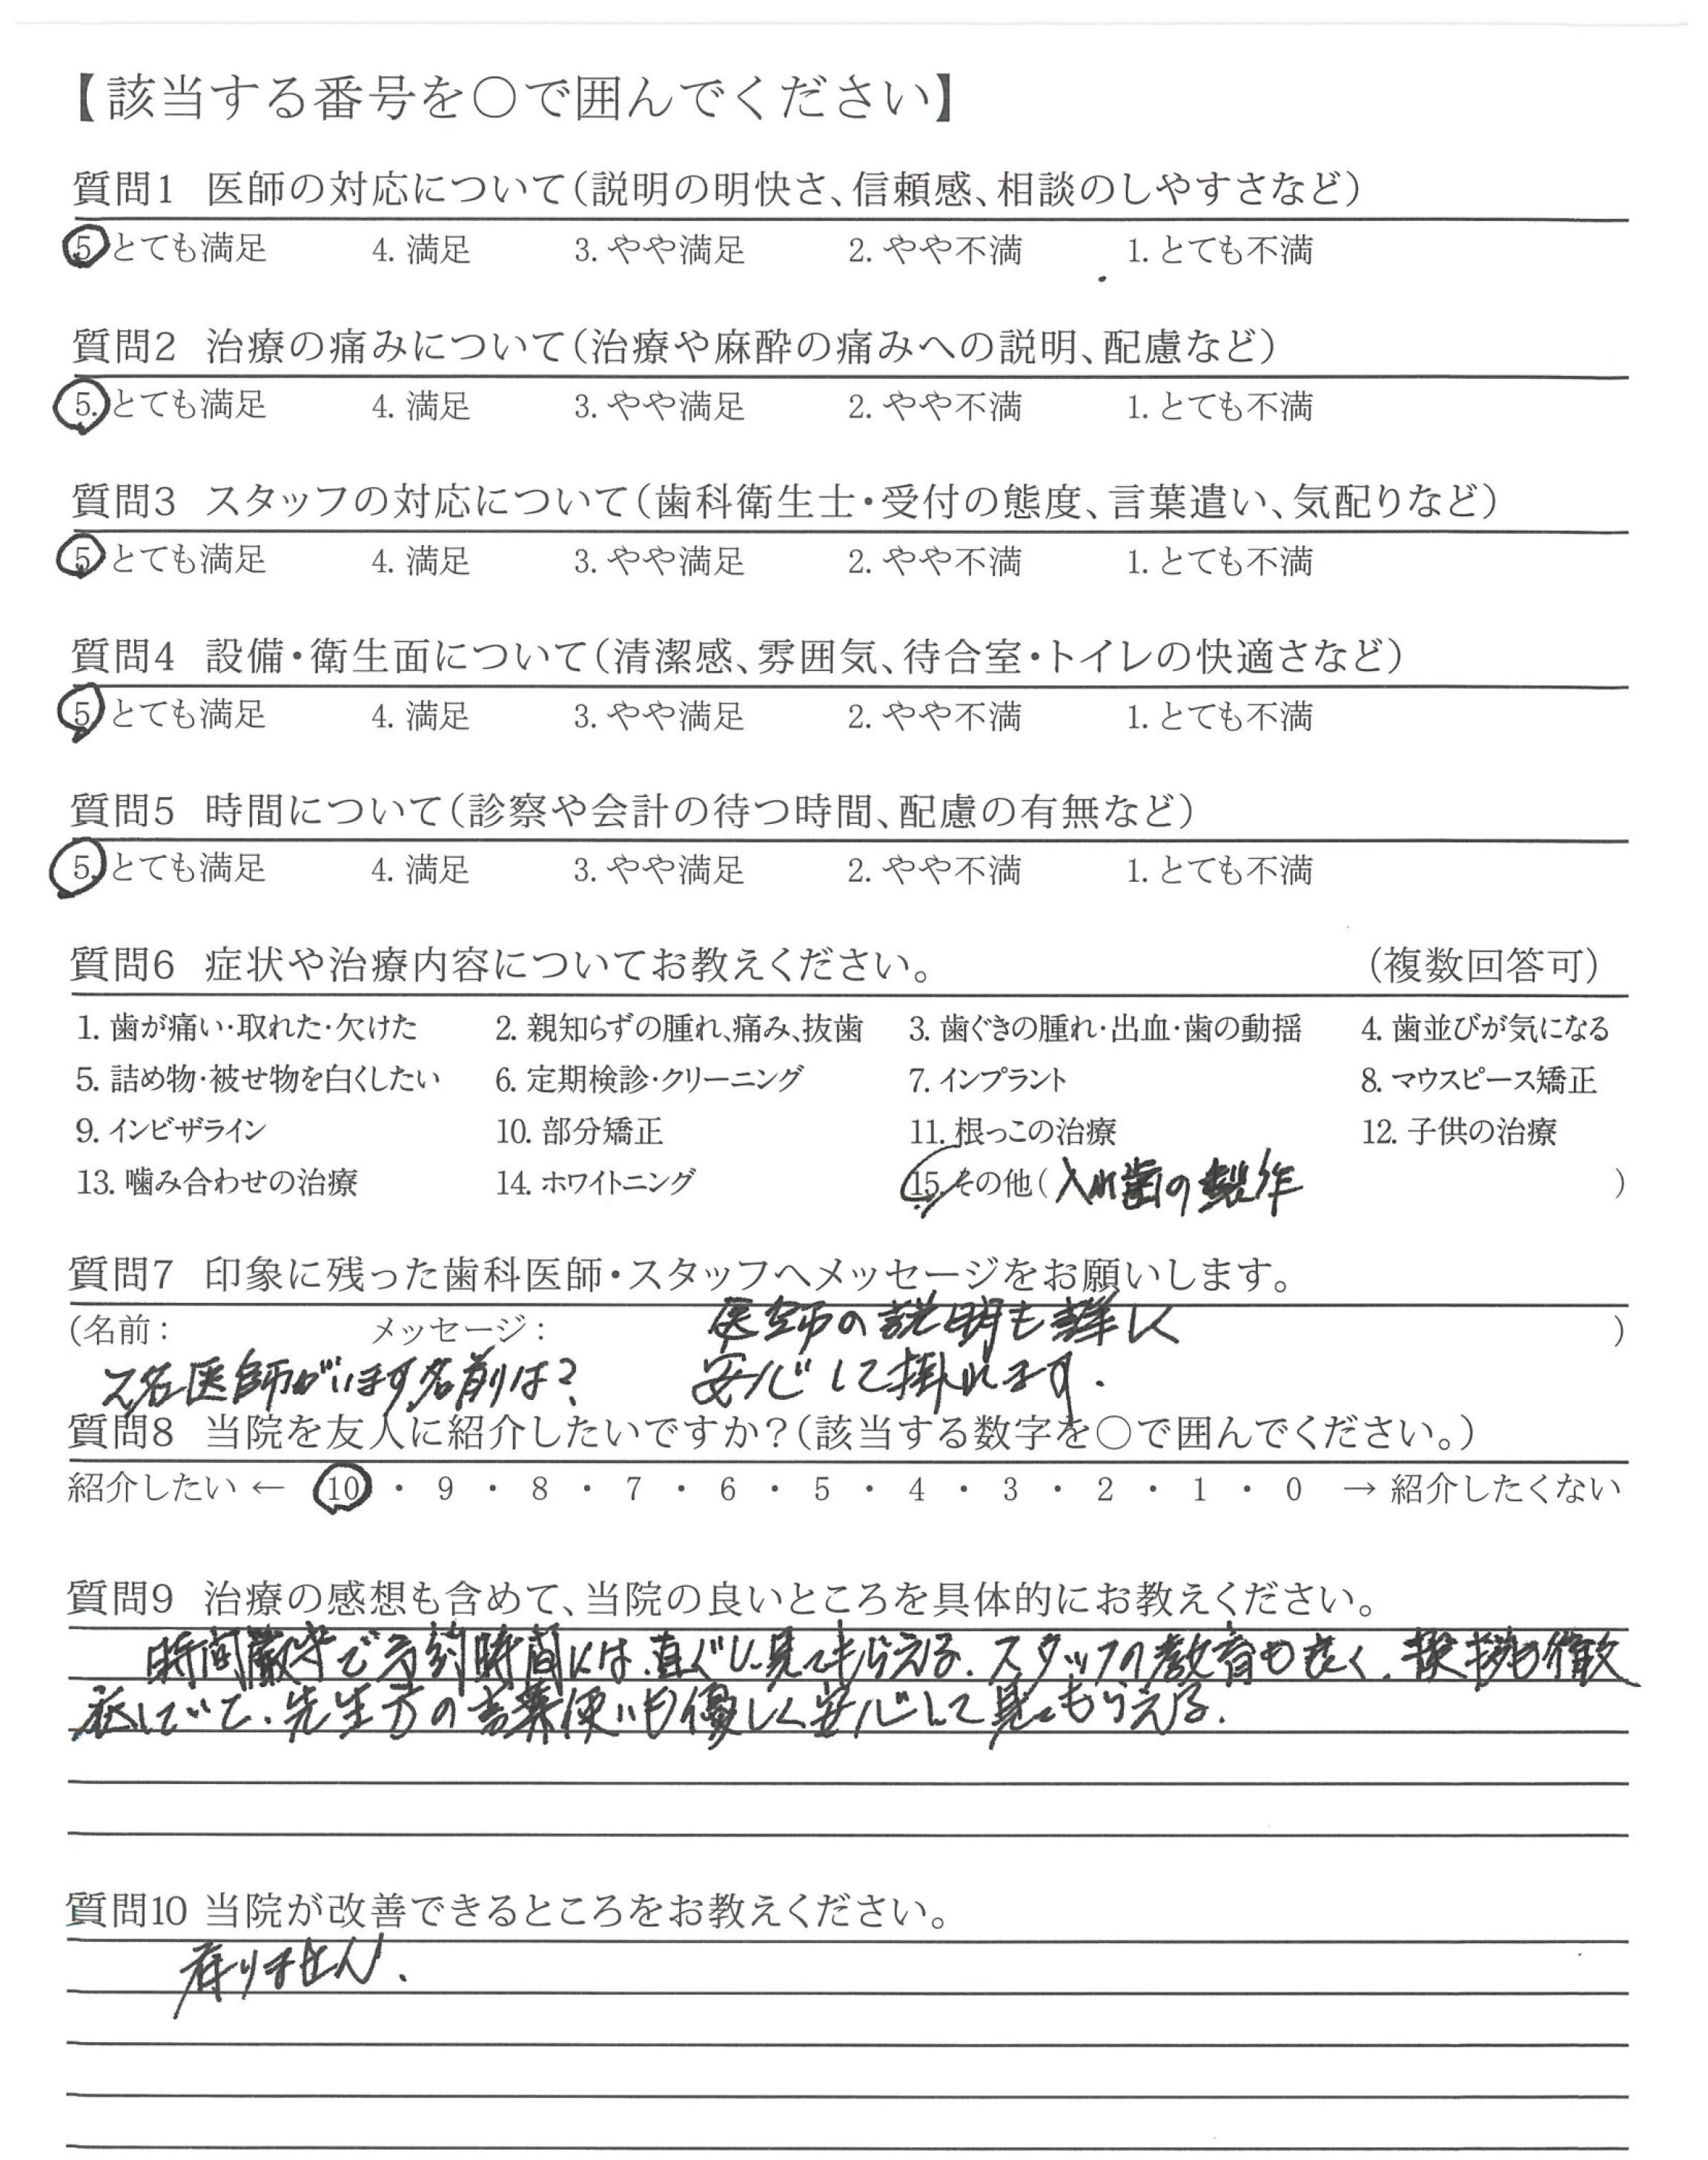 【該当する番号を〇で囲んでください】
質問1 医師の対応について(説明の明快さ、信頼感、相談のしやすさなど)
5.とても満足 4. 満足 3. やや満足 2. やや不満 1. とても不満
質問2 治療の痛みについて(治療や麻酔の痛みへの説明、配慮など)
5.とても満足 4. 満足 3. やや満足 2. やや不満 1. とても不満
質問3 スタッフの対応について(歯科衛生士・受付の態度、言葉遣い、気配りなど)
5.とても満足 4. 満足 3. やや満足 2. やや不満 1. とても不満
質問4 設備・衛生面について(清潔感、雰囲気、待合室・トイレの快適さなど)
5.とても満足 4. 満足 3. やや満足 2. やや不満 1. とても不満
質問5 時間について(診察や会計の待つ時間、配慮の有無など)
5.とても満足 4. 満足 3. やや満足 2. やや不満 1. とても不満
質問6 症状や治療内容についてお教えください。 (複数回答可)
1. 歯が痛い・取れた・欠けた 2. 親知らずの腫れ、痛み、抜歯 3. 歯ぐきの腫れ・出血・歯の動揺 4. 歯並びが気になる
5. 詰め物・被せ物を白くしたい 6. 定期検診・クリーニング 7. インプラント 8. マウスピース矯正
9. インビザライン 10. 部分矯正 11. 根っこの治療 12. 子供の治療
13. 噛み合わせの治療 14. ホワイトニング 15.その他(入れ歯の製作 )
質問7 印象に残った歯科医師・スタッフへメッセージをお願いします。
(名前: メッセージ: 医師の説明も詳しく )
2名医師がいます名前は? 安心して掛れます.
質問8 当院を友人に紹介したいですか?(該当する数字を〇で囲んでください。)
紹介したい ← 10 ・ 9 ・ 8 ・ 7 ・ 6 ・ 5 ・ 4 ・ 3 ・ 2 ・ 1 ・ 0 → 紹介したくない
質問9 治療の感想も含めて、当院の良いところを具体的にお教えください。
時間厳守で予約時間には.直ぐに見てもらえる.スタッフの教育も良く.挨拶も徹
底していて.先生方の言葉使いも優しく安心して見てもらえる.
質問10 当院が改善できるところをお教えください。
有りません.